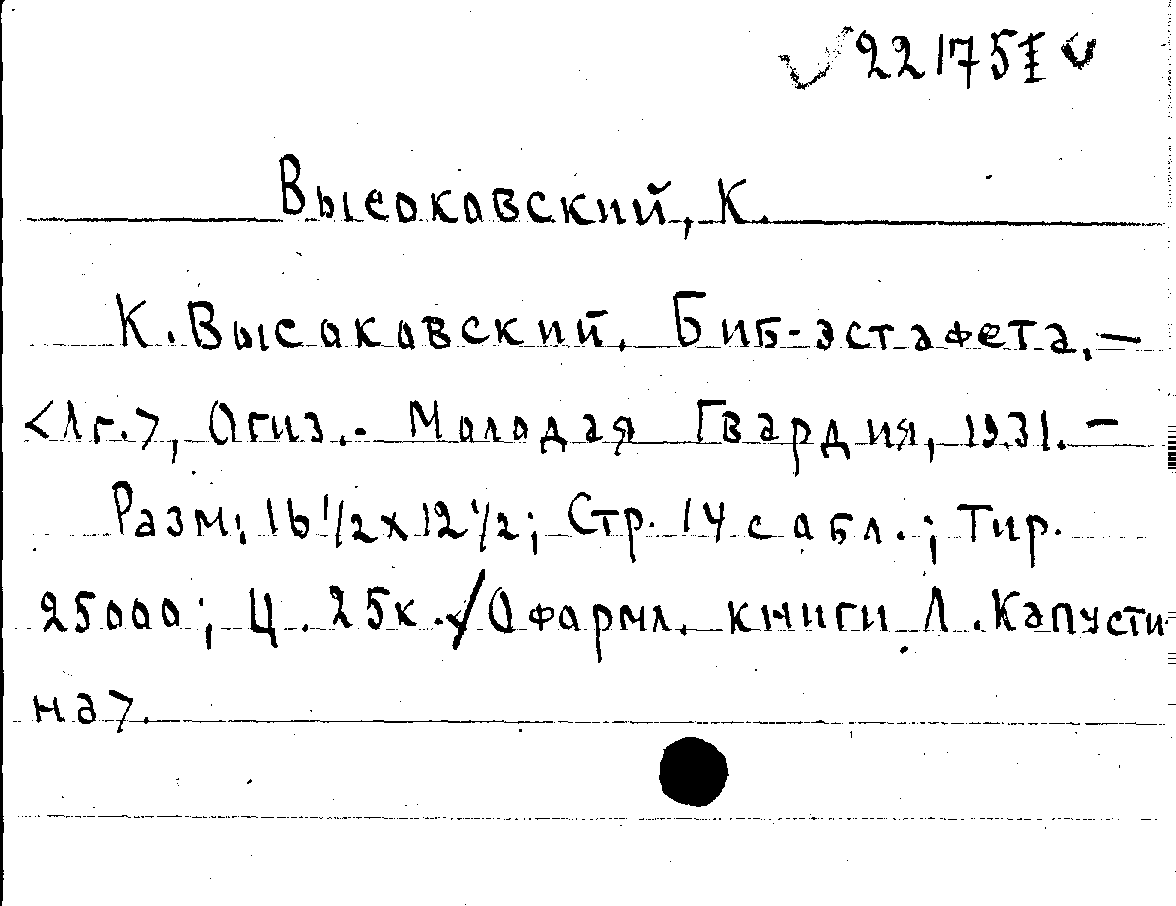 22175I
Высоковский, К.
К. Высоковский. Биб-эстафета. —
<Лг.>, Огиз.- Молодая Гвардия, 1931. —
Разм; 16 1/2 x 12 1/2; Стр. 14 с абл.; Тир.
25000; Ц. 25к. /Оформл. книги Л. Капусти-
на>.